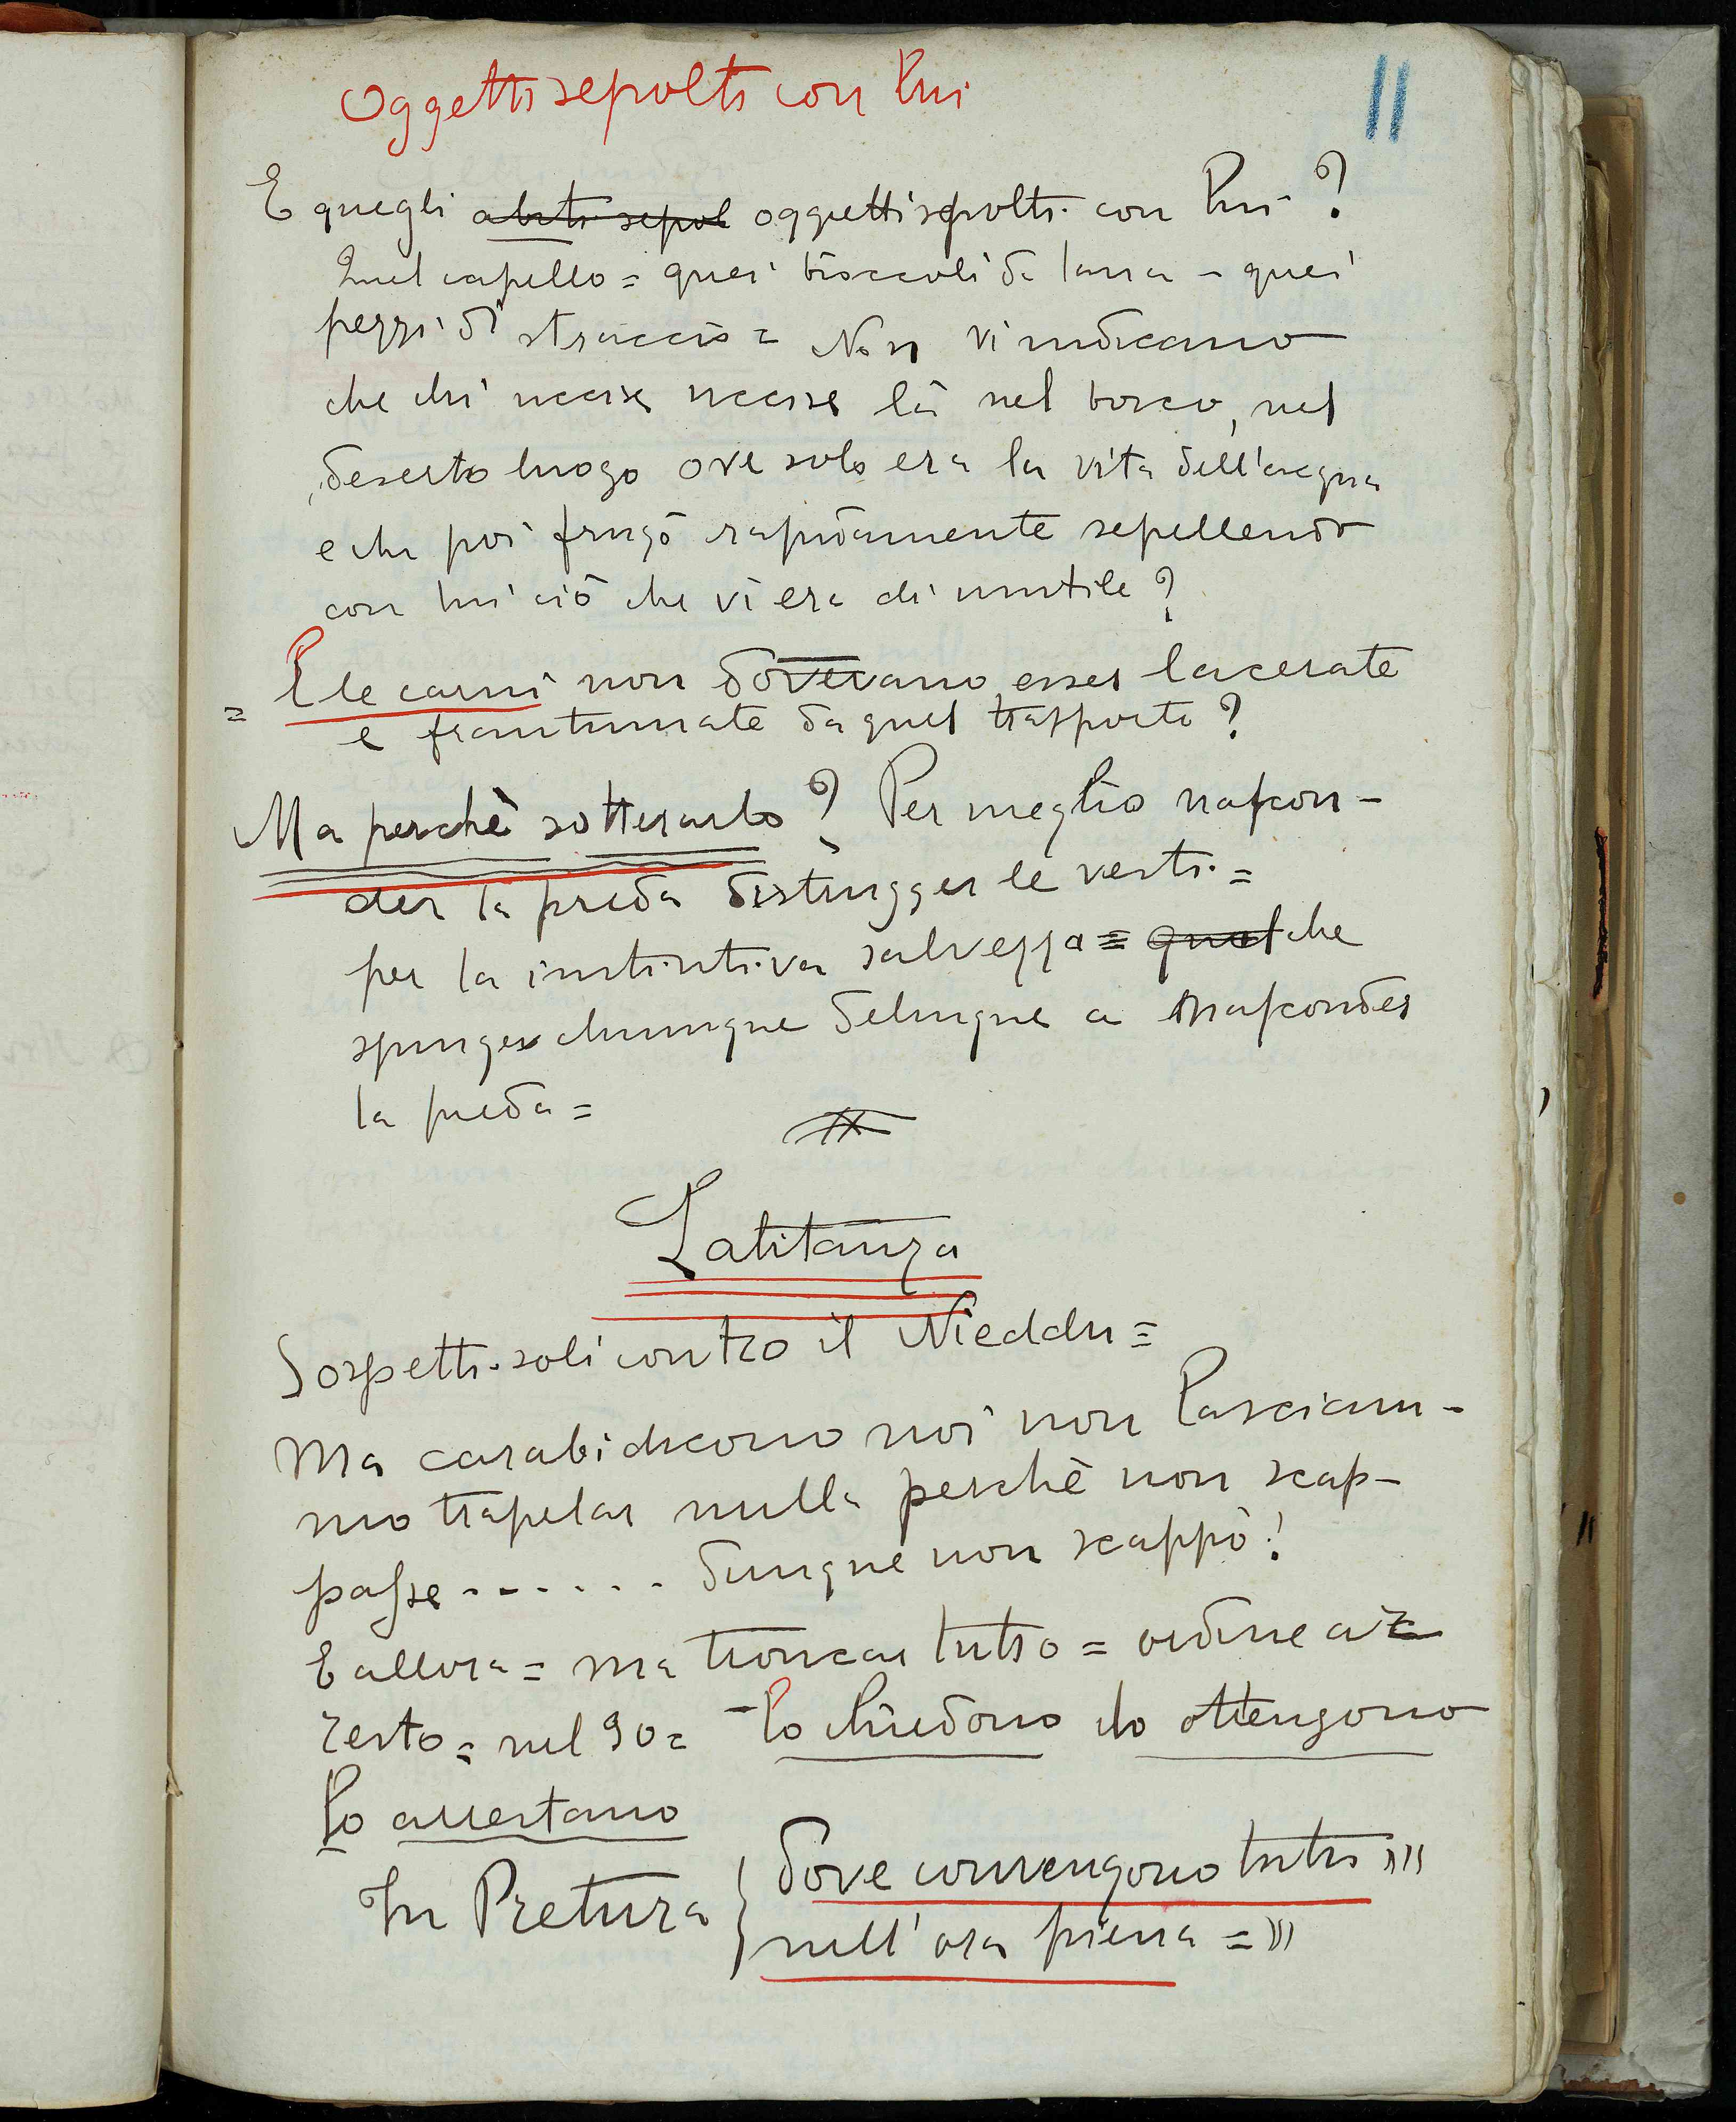 Oggetti sepolti con lui
11
E quegli abiti sepol oggetti sepolti con lui ?
Quel capello = quei bioccoli di lana - quei
pezzi di straccio = Non vi indicano
che chi uccise uccise là nel bosco, nel
deserto luogo ove solo era la vita dell'acqua
e che poi frugò rapidamente sepellendo
con lui ciò che vi era di inutile ?
= E le carni non dovevano esser lacerate
e frantumate da quel trasporto ?
Ma perchè sotterarlo ? Per meglio nascon-
der la preda distrugger le vesti =
per la instintiva salvezza = che
spinge chiunque delinque a nasconder
la preda =
Latitanza
Sospetti soli contro il Nieddu =
Ma carabi dicono noi non lasciam-
mo trapelar nulla perchè non scap-
passe - - - - - - dunque non scappò !
E allora = ma troncar tutto = ordine ar
resto = nel 90 = - lo chiedono lo ottengono
lo arrestano
In Pretura } dove convengono tutti )))
nell'ora piena = )))